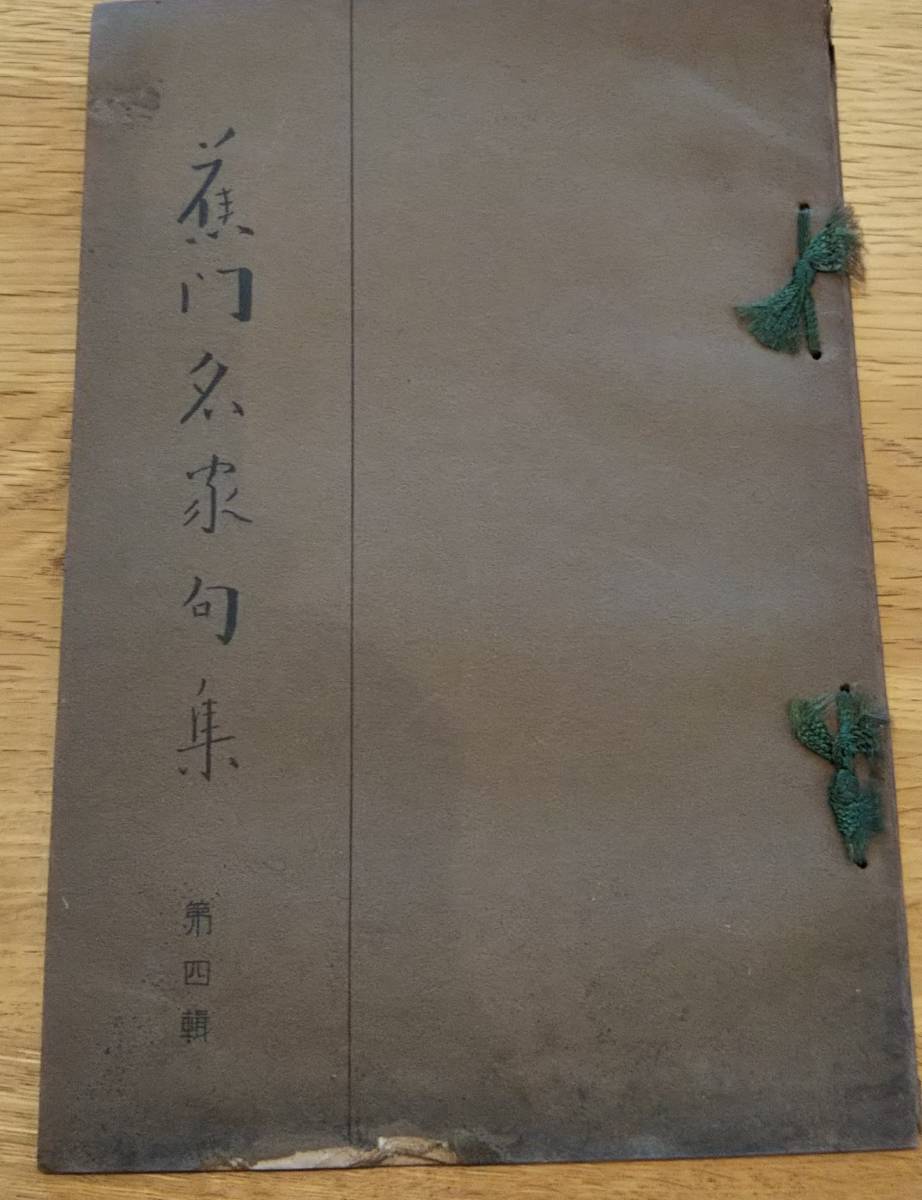 蕉门名家句集
第四輯